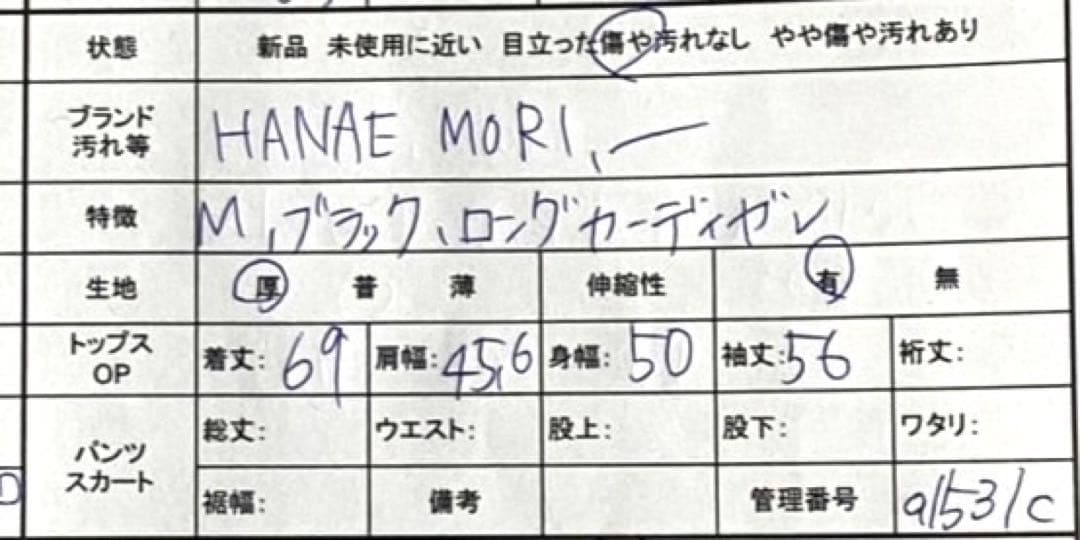 状態 新品 未使用に近い 目立った傷や汚れなし やや傷や汚れあり
ブランド 汚れ等 HANAE MORI、ー
特徴 M、ブラック、ロングカーディガン
生地 厚 普 薄 伸縮性 有 無
トップス OP 着丈: 69 肩幅: 45,6 身幅: 50 袖丈: 56 裄丈:
パンツ スカート 総丈: ウエスト: 股上: 股下: ワタリ:
裾幅: 備考 管理番号 a1531c